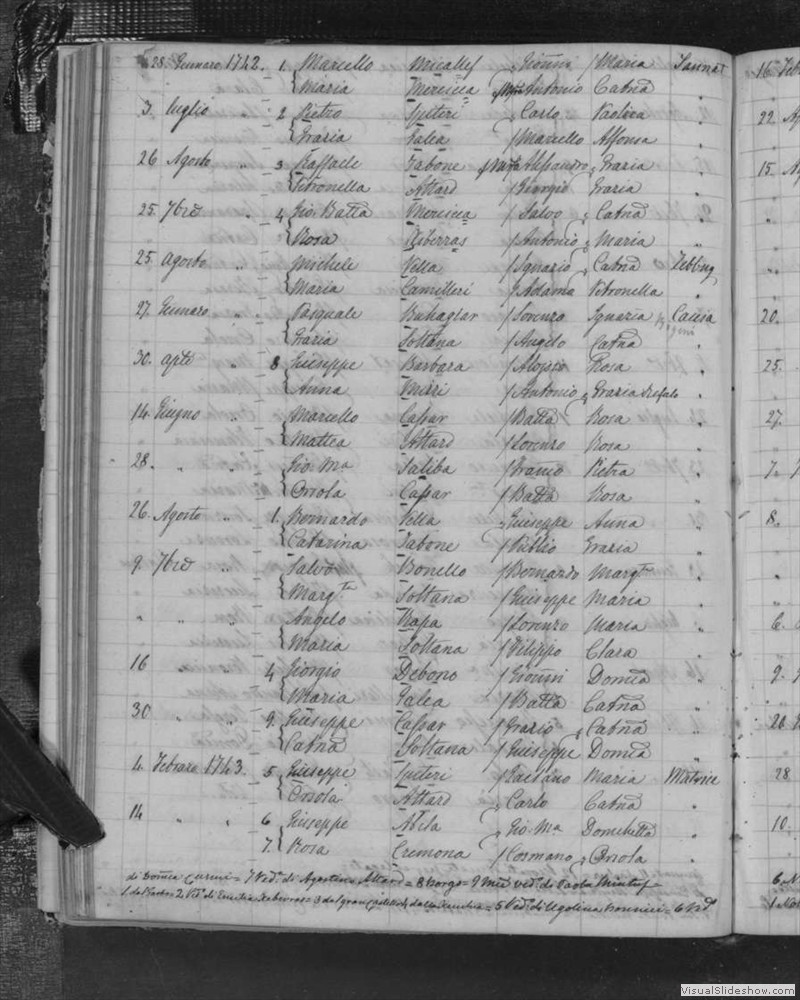 28. Gennaro 1742. 1. Marcello Micallef Gioñni Maria Sannat
Maria Mercieca Antonio Catña
3. luglio 2 Pietro Spiteri Carlo Paolica
Grazia Galea Marcello Alfonsa
26 Agosto 3 Raffaele Tabone Alessandro Grazia
Petronella Attard Giorgio Grazia
25. 7bre 4 Gio: Batta Mercieca Salvo Catña
Rosa Riberras Antonio Maria
25 Agosto Michele Vella Ignazio Catña Zebbug
Maria Camilleri Adamo Petronella
27. Gennaro Pasquale Buhagiar Lorenzo Ignazia Caccia
Grazia Soltana Angelo Catña
30. aple 8 Giuseppe Barbara Aloisio Rosa
Anna Mizzi Antonio Grazia
14. Giugno Marcello Cassar Batta Rosa
Mattea Attard Lorenzo Rosa
28. Gio: Ma Saliba Franco Pietra
Orsola Cassar Batta Rosa
26. Agosto 1. Bernardo Vella Giuseppe Anna
Catarina Tabone Publio Grazia
9. 7bre Salvo Bonello Bernardo Margta
Margta Soltana Giuseppe Maria
Angelo Rapa Lorenzo Maria
Maria Soltana Filippo Clara
16 4 Giorgio Debono Gioñni Domca
Maria Galea Batta Catña
30 9. Giuseppe Cassar Grazio Catña
Catña Soltana Giuseppe Domca
4. Febraro 1743. 5 Giuseppe Spiteri Gaetano Maria Matrice
Orsola Attard Carlo Catña
14 6 Giuseppe Abela Gio: Ma
7. Rosa Cremona Cosmano Orsola
7 Ved. di Agostino Attard = 8 Borgo = 9 ved. di Paola Mintuf
5 Ved. di Ugolino Bonnici = 6
16
22.
15.
20.
25.
27.
7.
8.
6.
9.
28
10.
6.
1.
VisualSlideshow.com